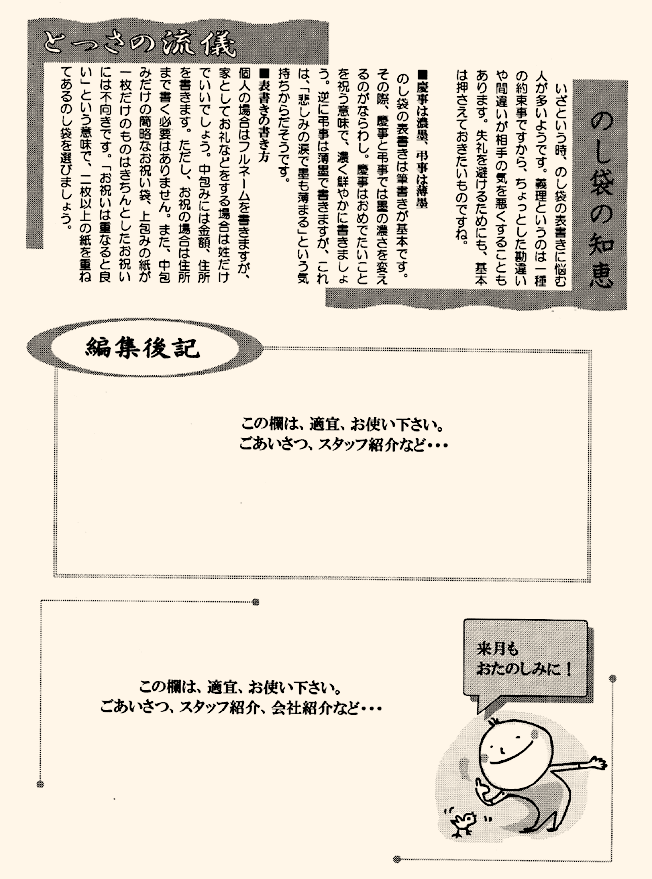 とっさの流儀
のし袋の知恵
いざという時、のし袋の表書きに悩む
人が多いようです。義理というのは一種
の約束事ですから、ちょっとした勘違い
や間違いが相手の気を悪くすることも
あります。失礼を避けるためにも、基本
は押さえておきたいものですね。
■慶事は濃墨、弔事は薄墨
のし袋の表書きは筆書きが基本です。
その際、慶事と弔事では墨の濃さを変え
るのがならわし。慶事はおめでたいこと
を祝う意味で、濃く鮮やかに書きましょ
う。逆に弔事は薄墨で書きますが、これ
は、「悲しみの涙で墨も薄まる」という気
持ちからだそうです。
■表書きの書き方
個人の場合はフルネームを書きますが、
家としてお礼などをする場合は姓だけ
でいいでしょう。中包みには金額、住所
を書きます。ただし、お祝の場合は住所
まで書く必要はありません。また、中包
みだけの簡略なお祝い袋、上包みの紙が
一枚だけのものはきちんとしたお祝い
には不向きです。「お祝いは重なると良
い」という意味で、二枚以上の紙を重ね
てあるのし袋を選びましょう。
編集後記
この欄は、適宜、お使い下さい。
ごあいさつ、スタッフ紹介など・・・
この欄は、適宜、お使い下さい。
ごあいさつ、スタッフ紹介、会社紹介など・・・
来月も
おたのしみに！